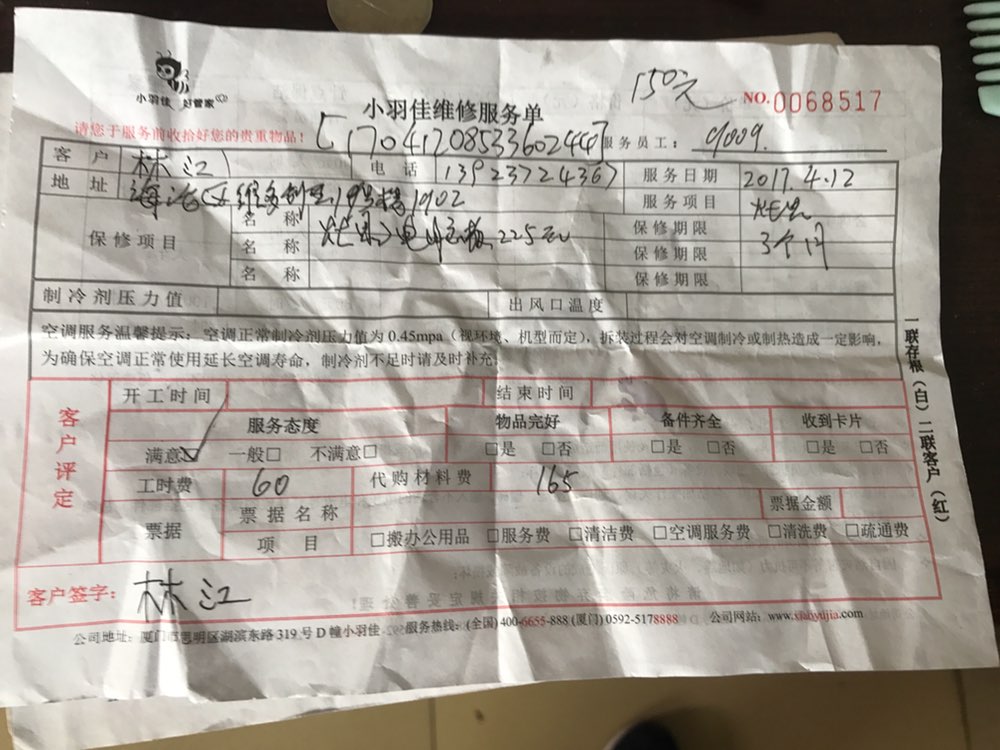 小羽佳 好管家
小羽佳维修服务单
150元
NO.0068517
请您于服务前收拾好您的贵重物品!
服务员工: 9009.
客户 林江 电话 13923724367 服务日期 2017.4.12
地址 1902 服务项目
保修项目 名称 225元 保修期限 3个月
名称 保修期限
名称 保修期限
制冷剂压力值 出风口温度
空调服务温馨提示:空调正常制冷剂压力值为0.45mpa(视环境、机型而定),拆装过程会对空调制冷或制热造成一定影响,
为确保空调正常使用延长空调寿命,制冷剂不足时请及时补充。
客户评定
开工时间 结束时间
服务态度 物品完好 备件齐全 收到卡片
满意☑ 一般□ 不满意□ □是 □否 □是 □否 □是 □否
工时费 60 代购材料费 165
票据 票据名称 票据金额
项目 □搬办公用品 □服务费 □清洁费 □空调服务费 □清洗费 □疏通费
客户签字: 林江
公司地址:厦门市思明区湖滨东路319号D幢小羽佳 服务热线:(全国)400-6655-888 (厦门)0592-5178888 公司网站:www.xiaoyujia.com
一联存根(白)二联客户(红)